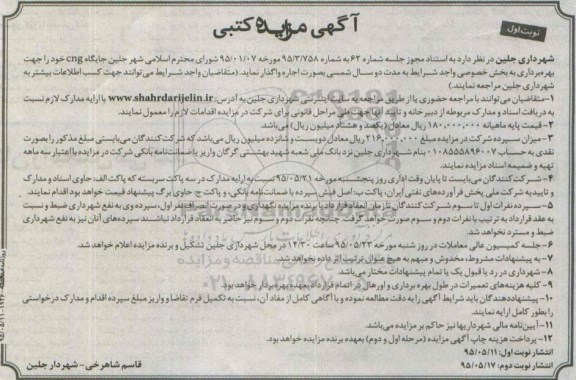 نوبت اول
آگهی مزایده کتبی
شهرداری جلین در نظر دارد به استناد مجوز جلسه شماره ۶۲ به شماره ۹۵/۳/۷۵۸ مورخه ۹۵/۰۱/۰۷ شورای محترم اسلامی شهر جلین جایگاه cng خود را جهت
بهره‌برداری به بخش خصوصی واجد شرایط به مدت دو سال شمسی بصورت اجاره واگذار نماید. (متقاضیان واجد شرایط می‌توانند جهت کسب اطلاعات بیشتر به
شهرداری جلین مراجعه نمایند.)
۱-متقاضیان می‌توانند با مراجعه حضوری یا از طریق مراجعه به سایت اینترنتی شهرداری جلین به آدرس: www.shahrdarijelin.ir با ارایه مدارک لازم نسبت
به دریافت اسناد و مدارک مربوطه از دبیرخانه و تایید آن جهت طی مراحل قانونی برای شرکت در مزایده اقدامات لازم را معمول نمایند.
۲- قیمت پایه ماهیانه ۱۸۰,۰۰۰,۰۰۰ ریال معادل (یکصد و هشتاد میلیون ریال) می‌باشد.
۳- میزان سپرده شرکت در مزایده مبلغ ۲۱۶,۰۰۰,۰۰۰ ریال معادل دویست و شانزده میلیون ریال می‌باشد که شرکت‌کنندگان می‌بایستی مبلغ مذکور را بصورت
نقدی به حساب ۰۱۰۸۵۵۵۸۹۶۰۰۷ بنام شهرداری جلین نزد بانک ملی شعبه شهید بهشتی گرگان واریز یا ضمانت‌نامه بانکی شرکت در مزایده با اعتبار سه ماهه
تهیه و ضمیمه اسناد مزایده نمایند.
۴- شرکت‌کنندگان می‌بایست تا پایان وقت اداری روز پنجشنبه مورخه ۹۵/۰۵/۲۱ نسبت به ارایه مدارک در سه پاکت سربسته که پاکت الف: حاوی اسناد و مدارک
و تاییدیه شرکت ملی پخش فرآورده‌های نفتی ایران، پاکت ب: اصل فیش سپرده یا ضمانت‌نامه بانکی، و پاکت ج: حاوی برگ پیشنهاد قیمت خواهد بود اقدام نمایند.
۵- سپرده نفرات اول تا سوم شرکت‌کنندگان تا زمان انعقاد قرارداد با برنده مزایده نگهداری و در صورت انصراف نفر اول، سپرده‌ی وی به نفع شهرداری ضبط و نسبت
به عقد قرارداد به ترتیب با نفرات دوم و سوم صورت خواهد گرفت. چنانچه نفرات دوم و سوم نیز حاضر به انعقاد قرارداد نباشند سپرده‌های آنان نیز به نفع شهرداری
ضبط و مسترد نخواهد شد.
۶- جلسه کمیسیون عالی معاملات در روز شنبه مورخه ۹۵/۰۵/۲۳ ساعت ۱۴/۳۰ در محل شهرداری جلین تشکیل و برنده مزایده اعلام خواهد شد.
۷- به پیشنهادات مشروط، مخدوش و مبهم به هیچ عنوان ترتیب اثر داده نخواهد شد.
۸- شهرداری در رد یا قبول یک یا تمام پیشنهادات مختار می‌باشد.
۹- کلیه هزینه‌های تعمیرات در طول بهره برداری و اورهال در اتمام قرارداد بعهده بهره‌بردار خواهد بود.
۱۰- پیشنهاددهندگان باید شرایط آگهی را به دقت مطالعه نموده و با آگاهی کامل از مفاد آن، نسبت به تکمیل فرم تقاضا و واریز مبلغ سپرده اقدام و مدارک درخواستی
را بطور کامل ارایه نمایند.
۱۱- آیین‌نامه مالی شهرداریها نیز حاکم بر مزایده می‌باشد.
۱۲- پرداخت هزینه چاپ آگهی مزایده (مرحله اول و دوم) بعهده برنده مزایده خواهد بود.
انتشار نوبت اول: ۹۵/۰۵/۱۱
انتشار نوبت دوم: ۹۵/۰۵/۱۷
قاسم شاهرخی - شهردار جلین